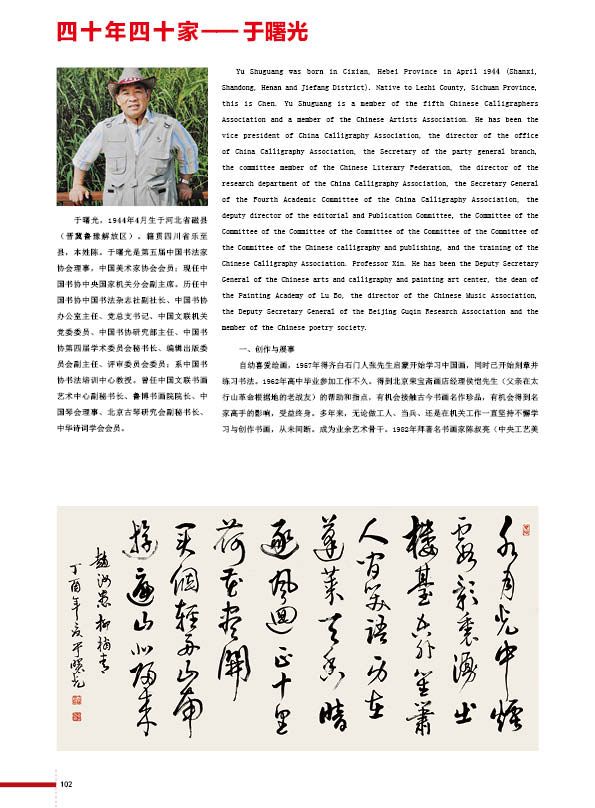 四十年四十家——于曙光
Yu Shuguang was born in Cixian, Hebei Province in April 1944 (Shanxi,
Shandong, Henan and Jiefang District). Native to Lezhi County, Sichuan Province,
this is Chen. Yu Shuguang is a member of the fifth Chinese Calligraphers
Association and a member of the Chinese Artists Association. He has been the
vice president of China Calligraphy Association, the director of the office
of China Calligraphy Association, the Secretary of the party general branch,
the committee member of the Chinese Literary Federation, the director of the
research department of the China Calligraphy Association, the Secretary General
of the Fourth Academic Committee of the China Calligraphy Association, the
deputy director of the editorial and Publication Committee, the Committee of the
Committee of the Committee of the Committee of the Committee of the Committee of
the Committee of the Chinese calligraphy and publishing, and the training of the
Chinese Calligraphy Association. Professor Xin. He has been the Deputy Secretary
General of the Chinese arts and calligraphy and painting art center, the dean of
the Painting Academy of Lu Bo, the director of the Chinese Music Association,
the Deputy Secretary General of the Beijing Guqin Research Association and the
member of the Chinese poetry society.
于曙光，1944年4月生于河北省磁县
（晋冀鲁豫解放区）。籍贯四川省乐至
县，本姓陈。于曙光是第五届中国书法家
协会理事，中国美术家协会会员；现任中
国书协中央国家机关分会副主席。历任中
国书协中国书法杂志社副社长、中国书协
办公室主任、党总支书记、中国文联机关
党委委员、中国书协研究部主任、中国书
协第四届学术委员会秘书长、编辑出版委
员会副主任、评审委员会委员；系中国书
协书法培训中心教授。曾任中国文联书画
艺术中心副秘书长、鲁博书画院院长、中
国琴会理事、北京古琴研究会副秘书长、
中华诗词学会会员。
一、创作与履事
自幼喜爱绘画，1957年得齐白石门人张先生启蒙开始学习中国画，同时己开始刻章并
练习书法。1962年高中毕业参加工作不久。得到北京荣宝斋画店经理侯恺先生（父亲在太
行山革命根据地的老战友）的帮助和指点，有机会接触古今书画名作珍品，有机会得到名
家高手的影响，受益终身。多年来，无论做工人、当兵、还是在机关工作一直坚持不懈学
习与创作书画，从未间断。成为业余艺术骨干。1982年拜著名书画家陈叔亮（中央工艺美
水月光中烟
霞影裏湧出
樓臺空外笙簫
人间笑語身在
蓬莱天香暗
逐風迴正十里
荷花盡開
买個輕舟山南
游遍山北归来
趙汝愚柳梢青
丁酉年夏于曙光
102